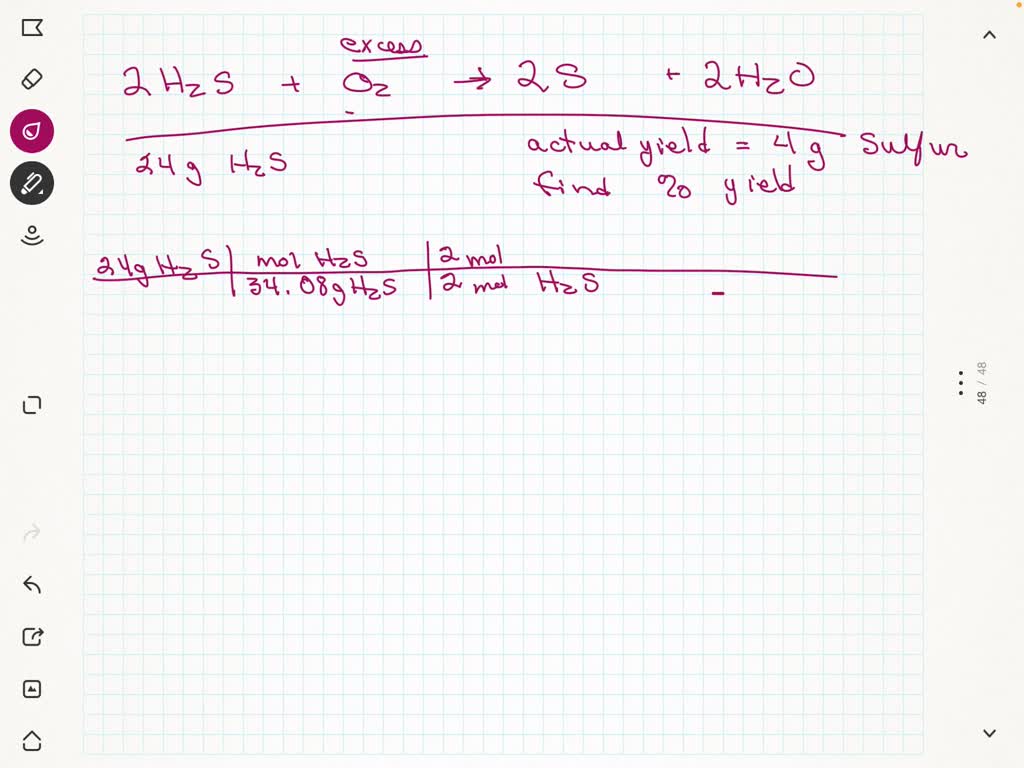 excess
2H₂S + O₂ → 2S + 2H₂O
24g H₂S
actual yield = 4g Sulfur
find % yield
24g H₂S | mol H₂S | 2 mol
34.08g H₂S | 2 mol H₂S =
48 / 48